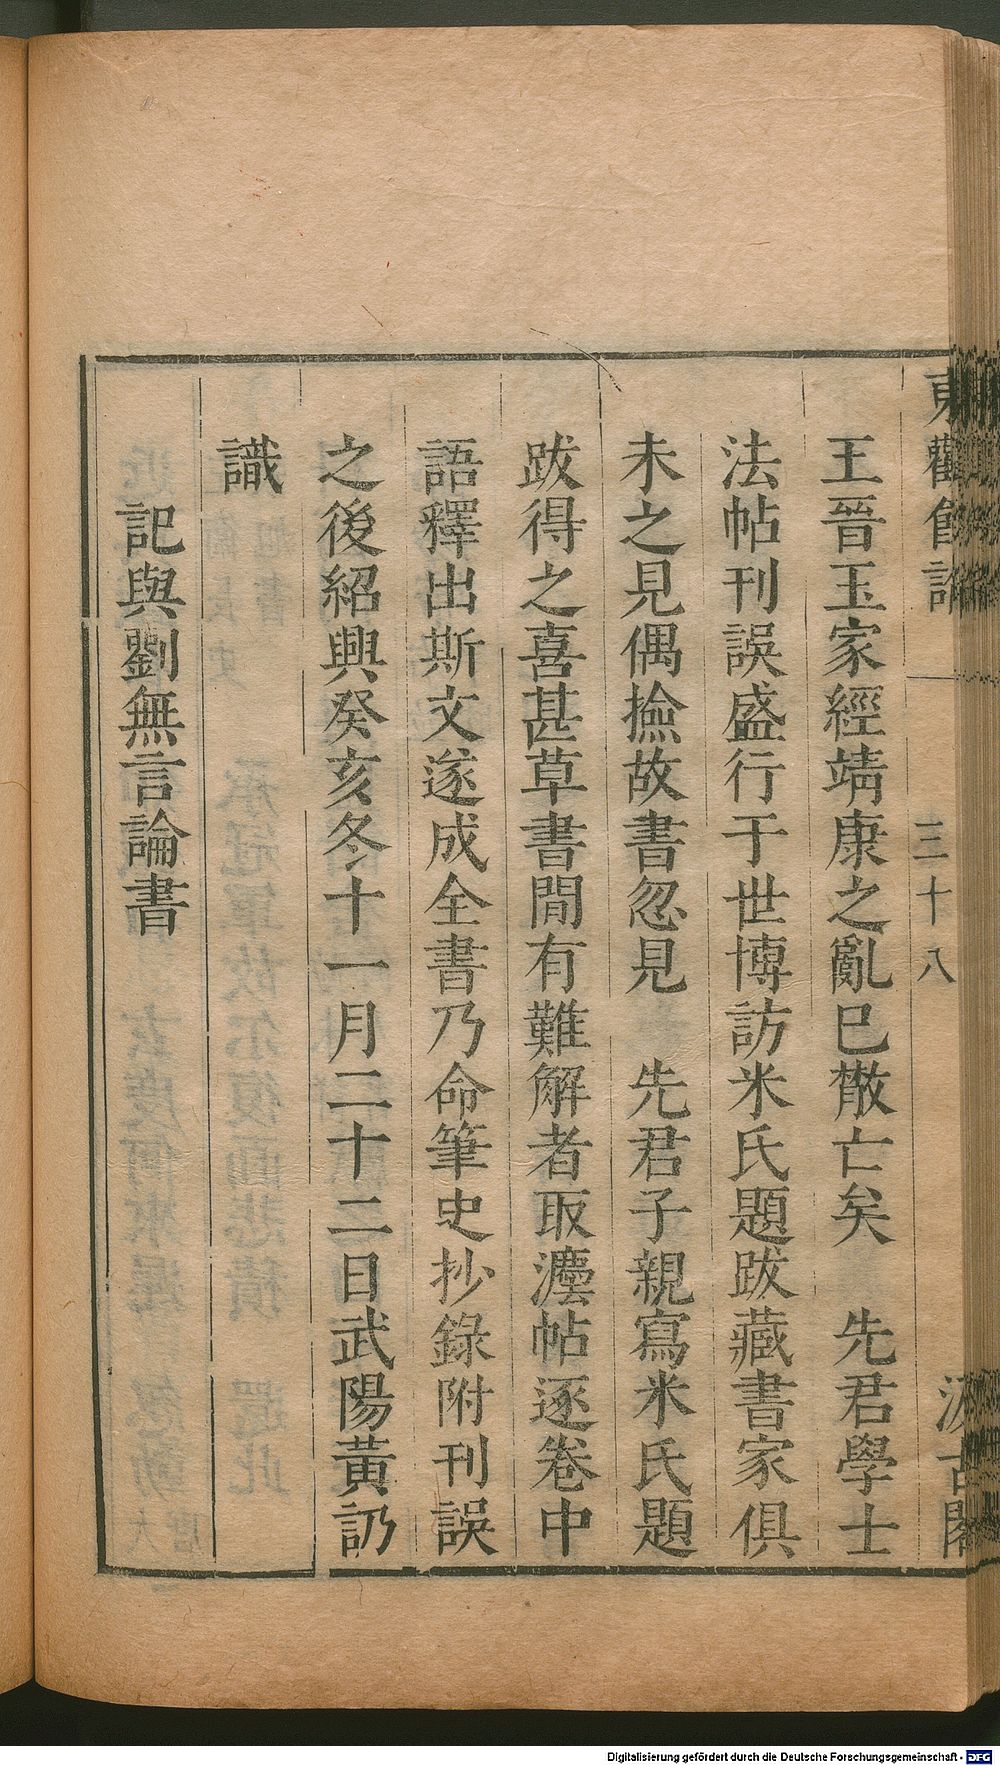 東觀餘論
三十八
汲古閣
王晉玉家經靖康之亂巳散亡矣 先君學士
法帖刊誤盛行于世博訪米氏題跋藏書家俱
未之見偶撿故書忽見 先君子親寫米氏題
跋得之喜甚草書閒有難解者取灋帖逐卷中
語釋出斯文遂成全書乃命筆史抄錄附刊誤
之後紹興癸亥冬十一月二十二日武陽黃訒
識
記與劉無言論書
Digitalisierung gefördert durch die Deutsche Forschungsgemeinschaft - DFG